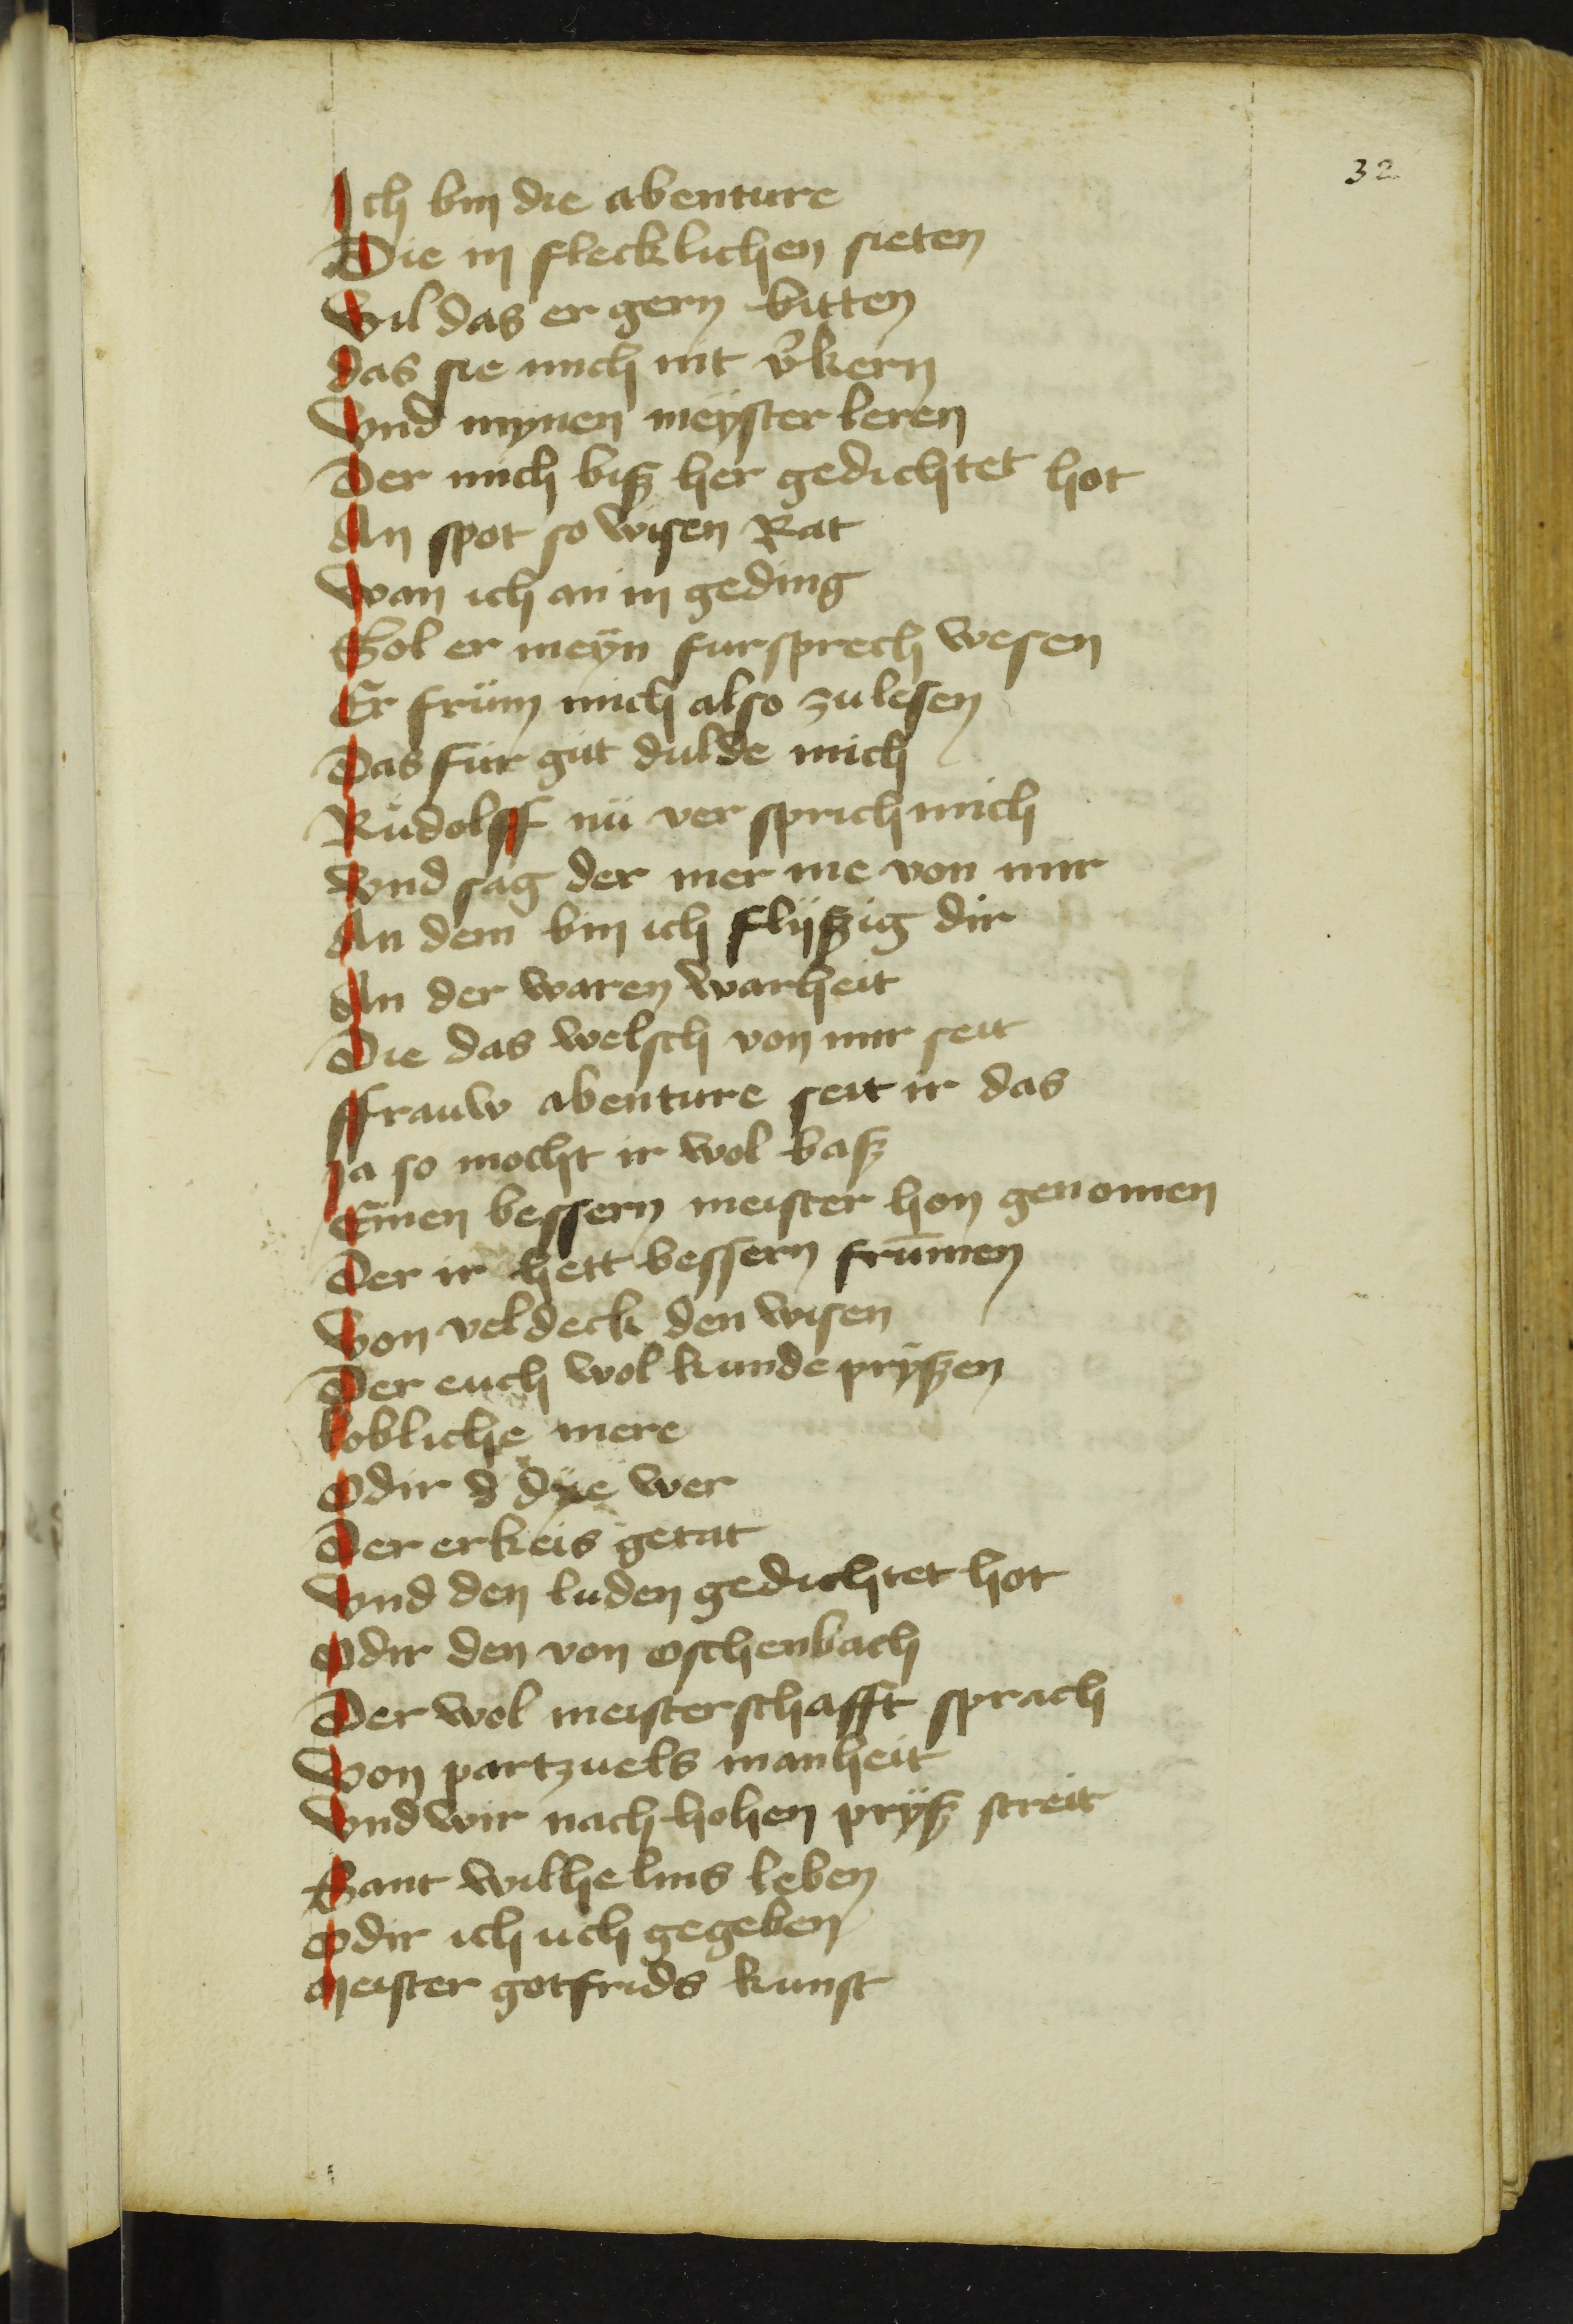 32
Ich bin die abenture
Die in flecklichen sieten
Wil das er gern bitten
das sie mich nit v̓kern
Vnd mynen meyster leren
Der mich biß her gedichtet hot
An spot so wisen Rat
Wan ich an in geding
Sol er meÿn fursprech wesen
Er frům mich also zu lesen
Das fur gut dulde mich
Růdolff nů ver sprich mich
Vnd sag der mer me von mir
An dem bin ich flijßig dir
An der waren warheit
Die das welsch von mir seit
ffrauw abenture seit ir das
Ja so mocht ir wol baß
Einen bessern meister hon genomen
Der ir hett bessern frūmen
Von veldeck den wisen
Der euch wol kunde prÿßen
lobliche mere
Odir d dÿe wer
Der erkeis getat
Vnd den luden gedichtet hot
Odir den von oschenbach
Der wol meisterschafft sprach
Von partzuels manheit
Vnd wir nach hohen prÿß streit
Sant wilhelms leben
Odir ich uch gegeben
Meister gotfrids kunst